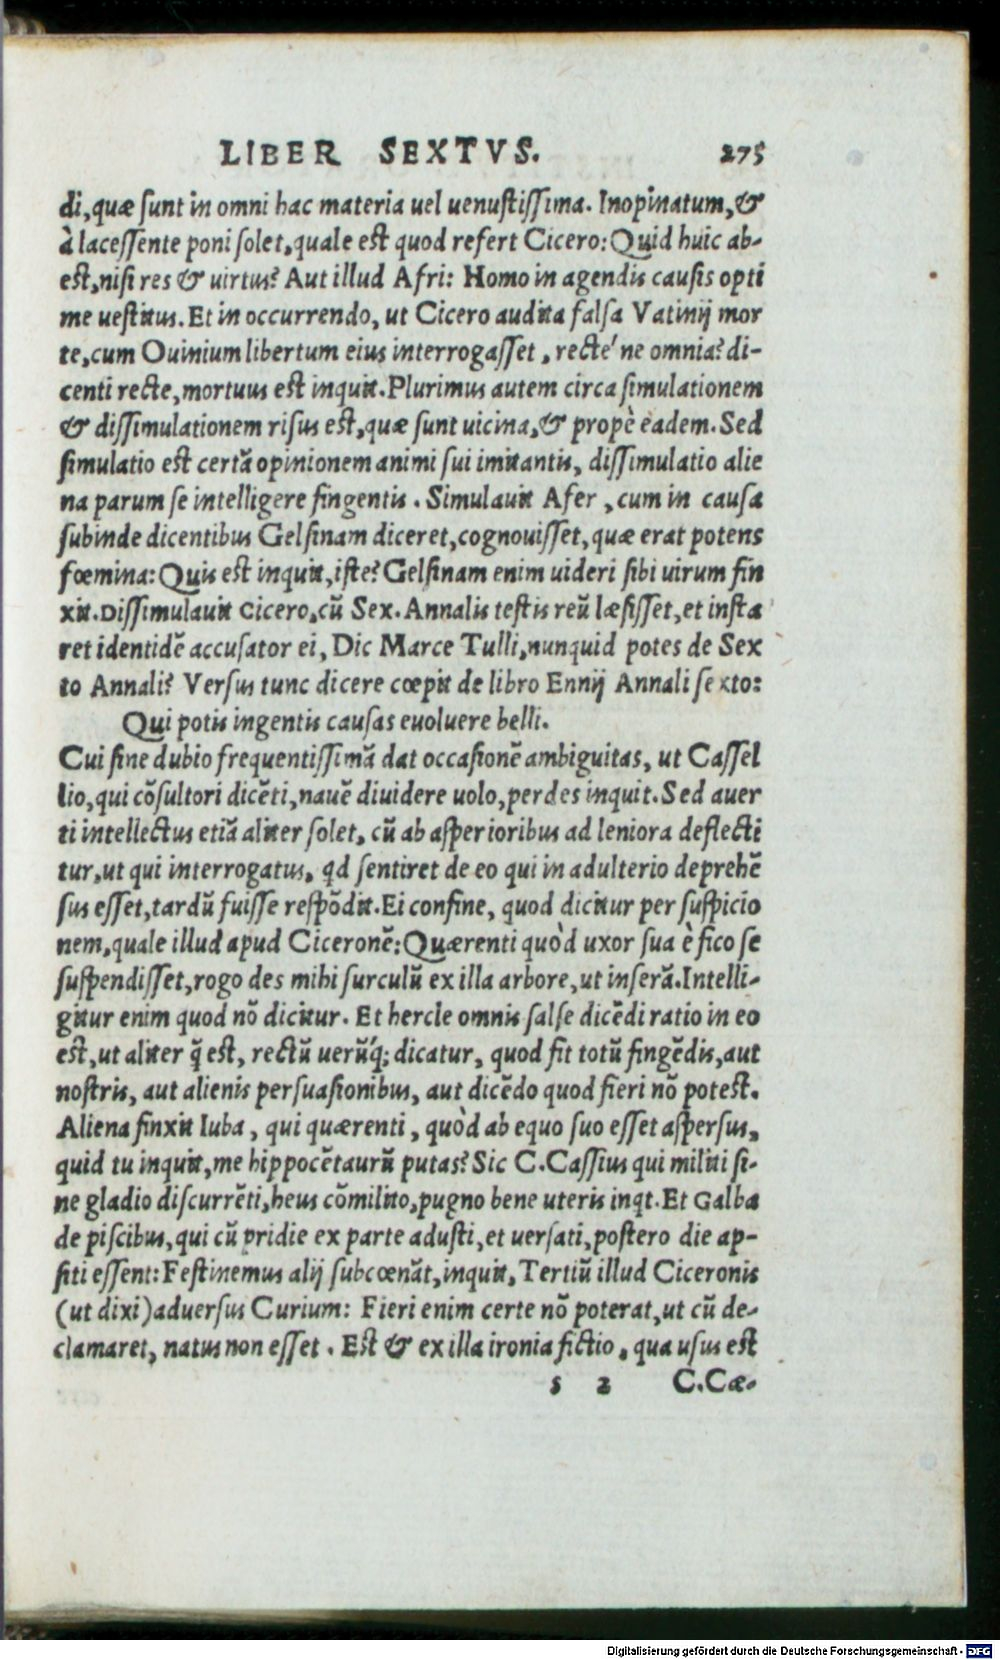 LIBER SEXTVS. 275
di, quæ sunt in omni hac materia uel uenustissima. Inopinatum, &
à lacessente poni solet, quale est quod refert Cicero: Quid huic ab-
est, nisi res & uirtus? Aut illud Afri: Homo in agendis causis opti
me uestitus. Et in occurrendo, ut Cicero audita falsa Vatinij mor
te, cum Ouinium libertum eius interrogasset, recte'ne omnia? di-
centi recte, mortuus est inquit. Plurimus autem circa simulationem
& dissimulationem risus est, quæ sunt uicina, & propè eadem. Sed
simulatio est certã opinionem animi sui imitantis, dissimulatio alie
na parum se intelligere fingentis. Simulauit Afer, cum in causa
subinde dicentibus Gelsinam diceret, cognouisset, quæ erat potens
fœmina: Quis est inquit, iste? Gelsinam enim uideri sibi uirum fin
xit. Dissimulauit Cicero, cũ Sex. Annalis testis reũ læsisset, et insta
ret identidẽ accusator ei, Dic Marce Tulli, nunquid potes de Sex
to Annali? Versus tunc dicere cœpit de libro Ennij Annali sexto:
Qui potis ingentis causas euoluere belli.
Cui sine dubio frequentissimã dat occasionẽ ambiguitas, ut Cassel
lio, qui cõsultori dicẽti, nauẽ diuidere uolo, perdes inquit. Sed auer
ti intellectus etiã aliter solet, cũ ab asperioribus ad leniora deflecti
tur, ut qui interrogatus, qd sentiret de eo qui in adulterio deprehẽ
sus esset, tardũ fuisse respõdit. Ei confine, quod dicitur per suspicio
nem, quale illud apud Ciceronẽ: Quærenti quòd uxor sua è fico se
suspendisset, rogo des mihi surculũ ex illa arbore, ut inserã. Intelli-
gitur enim quod nõ dicitur. Et hercle omnis salse dicẽdi ratio in eo
est, ut aliter q̃ est, rectũ uerũq́; dicatur, quod fit totũ fingẽdis, aut
nostris, aut alienis persuasionibus, aut dicẽdo quod fieri nõ potest.
Aliena finxit Iuba, qui quærenti, quòd ab equo suo esset aspersus,
quid tu inquit, me hippocẽtaurũ putas? Sic C. Cassius qui militi si-
ne gladio discurrẽti, heus cõmilito, pugno bene uteris inqt. Et Galba
de piscibus, qui cũ pridie ex parte adusti, et uersati, postero die ap-
siti essent: Festinemus alij subcœnãt, inquit, Tertiũ illud Ciceronis
(ut dixi) aduersus Curium: Fieri enim certe nõ poterat, ut cũ de-
clamaret, natus non esset. Est & ex illa ironia fictio, qua usus est
s 2 C. Cæ-
Digitalisierung gefördert durch die Deutsche Forschungsgemeinschaft - DFG